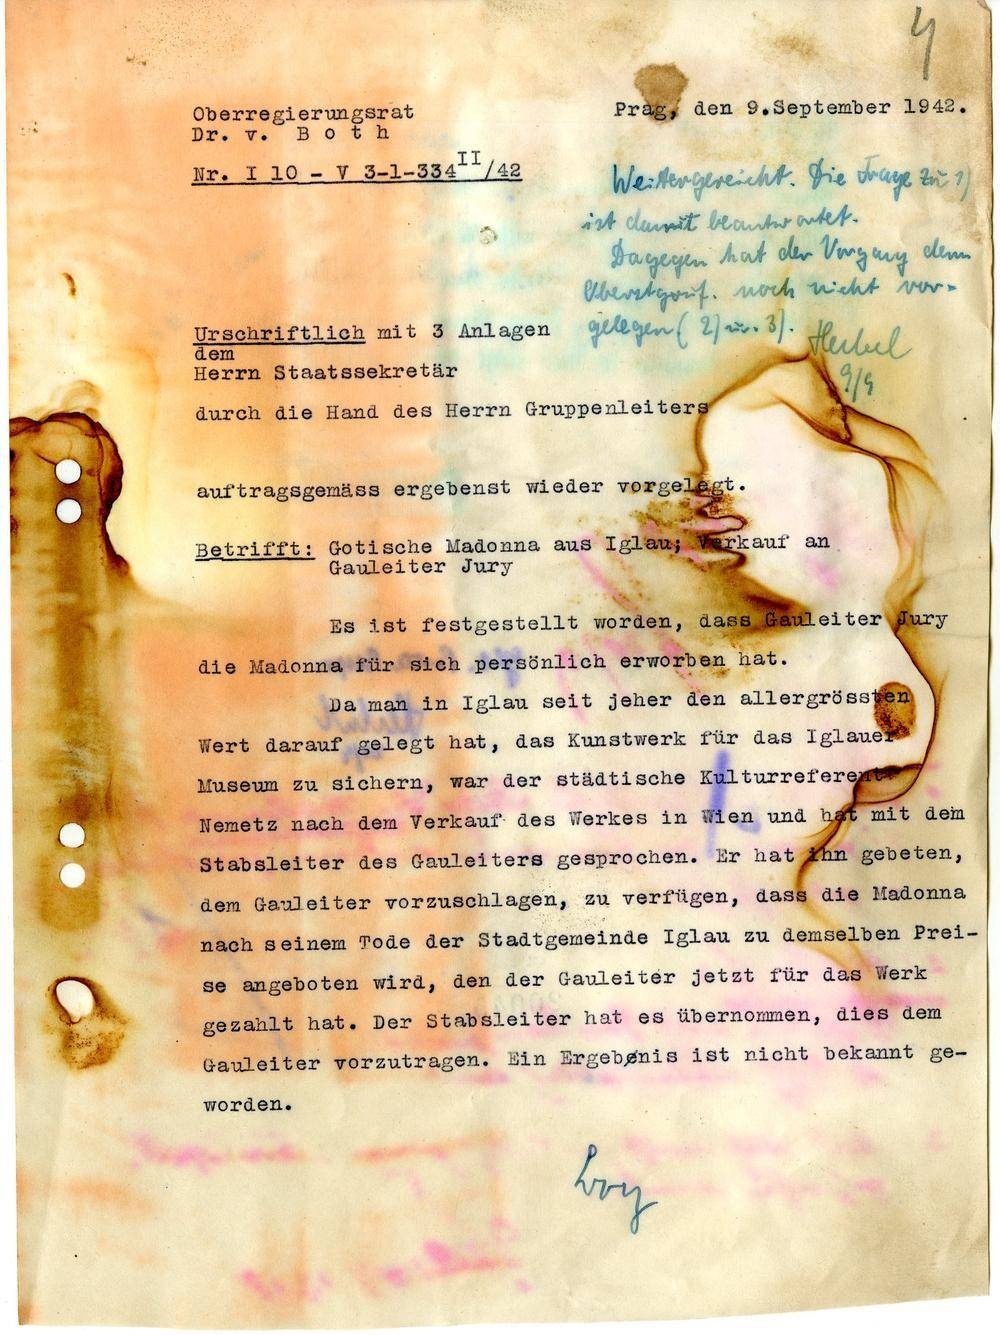 4
Oberregierungsrat
Dr. v. B o t h
Prag, den 9.September 1942.
Nr. I 10 - V 3-1-334 II/42
Weitergereicht. Die Frage zu 1)
ist damit beantwortet.
Dagegen hat der Vorgang dem
Oberstgruf. noch nicht vor-
gelegen (2) u. 3).
9/9
Urschriftlich mit 3 Anlagen
dem
Herrn Staatssekretär
durch die Hand des Herrn Gruppenleiters
auftragsgemäss ergebenst wieder vorgelegt.
Betrifft: Gotische Madonna aus Iglau; Verkauf an
Gauleiter Jury
Es ist festgestellt worden, dass Gauleiter Jury
die Madonna für sich persönlich erworben hat.
Da man in Iglau seit jeher den allergrössten
Wert darauf gelegt hat, das Kunstwerk für das Iglauer
Museum zu sichern, war der städtische Kulturreferent
Nemetz nach dem Verkauf des Werkes in Wien und hat mit dem
Stabsleiter des Gauleiters gesprochen. Er hat ihn gebeten,
dem Gauleiter vorzuschlagen, zu verfügen, dass die Madonna
nach seinem Tode der Stadtgemeinde Iglau zu demselben Prei-
se angeboten wird, den der Gauleiter jetzt für das Werk
gezahlt hat. Der Stabsleiter hat es übernommen, dies dem
Gauleiter vorzutragen. Ein Ergebnis ist nicht bekannt ge-
worden.